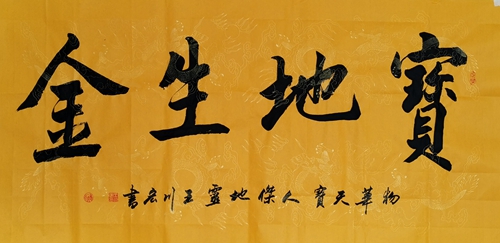 寶地生金
物華天寶人傑地靈王川宏書